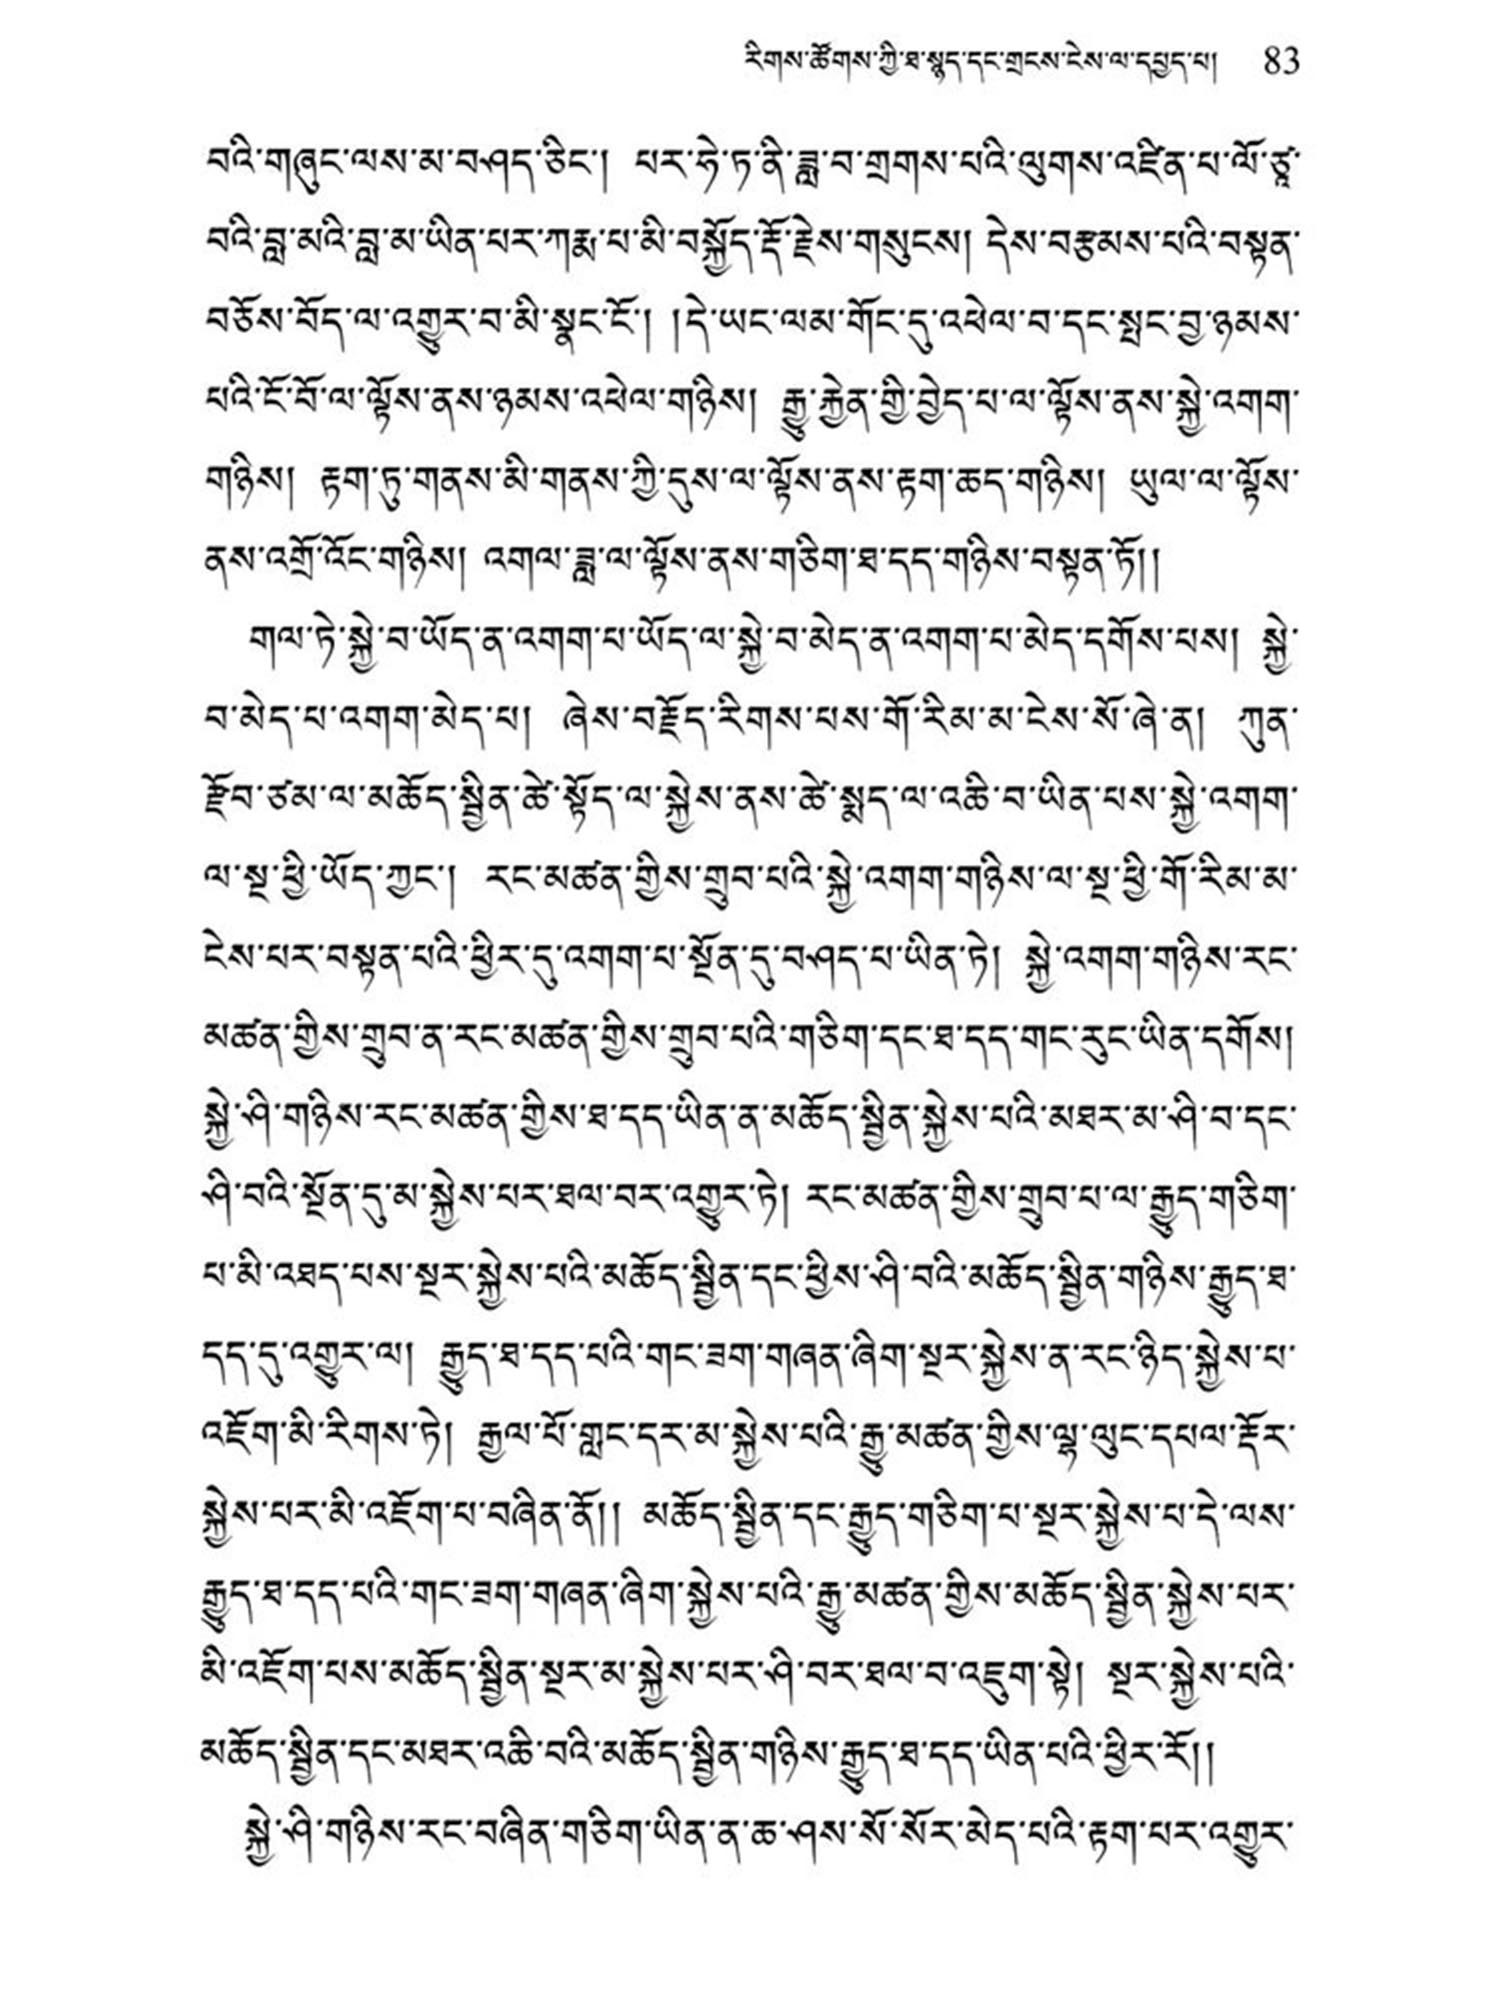 རིགས་ཚོགས་ཀྱི་ཐ་སྙད་དང་གྲངས་ངེས་ལ་དཔྱད་པ། 83
བའི་གཞུང་ལས་མ་བཤད་ཅིང་། པར་ཧེ་ཏ་ནི་ཟླ་བ་གྲགས་པའི་ལུགས་འཛིན་པ་ལོ་ཙཱ་
བའི་བླ་མའི་བླ་མ་ཡིན་པར་ཀརྨ་པ་མི་བསྐྱོད་རྡོ་རྗེས་གསུངས། དེས་བརྩམས་པའི་བསྟན་
བཅོས་བོད་ལ་འགྱུར་བ་མི་སྣང་ངོ་། །དེ་ཡང་ལམ་གོང་དུ་འཕེལ་བ་དང་སྤང་བྱ་ཉམས་
པའི་ངོ་བོ་ལ་ལྟོས་ནས་ཉམས་འཕེལ་གཉིས། རྒྱུ་རྐྱེན་གྱི་བྱེད་པ་ལ་ལྟོས་ནས་སྐྱེ་འགག་
གཉིས། རྟག་ཏུ་གནས་མི་གནས་ཀྱི་དུས་ལ་ལྟོས་ནས་རྟག་ཆད་གཉིས། ཡུལ་ལ་ལྟོས་
ནས་འགྲོ་འོང་གཉིས། འགལ་ཟླ་ལ་ལྟོས་ནས་གཅིག་ཐ་དད་གཉིས་བསྟན་ཏོ།།
གལ་ཏེ་སྐྱེ་བ་ཡོད་ན་འགག་པ་ཡོད་ལ་སྐྱེ་བ་མེད་ན་འགག་པ་མེད་དགོས་པས། སྐྱེ་
བ་མེད་པ་འགག་མེད་པ། ཞེས་བརྗོད་རིགས་པས་གོ་རིམ་མ་ངེས་སོ་ཞེ་ན། ཀུན་
རྫོབ་ཙམ་ལ་མཆོད་སྦྱིན་ཚེ་སྟོད་ལ་སྐྱེས་ནས་ཚེ་སྨད་ལ་འཆི་བ་ཡིན་པས་སྐྱེ་འགག་
ལ་སྔ་ཕྱི་ཡོད་ཀྱང་། རང་མཚན་གྱིས་གྲུབ་པའི་སྐྱེ་འགག་གཉིས་ལ་སྔ་ཕྱི་གོ་རིམ་མ་
ངེས་པར་བསྟན་པའི་ཕྱིར་དུ་འགག་པ་སྔོན་དུ་བཤད་པ་ཡིན་ཏེ། སྐྱེ་འགག་གཉིས་རང་
མཚན་གྱིས་གྲུབ་ན་རང་མཚན་གྱིས་གྲུབ་པའི་གཅིག་དང་ཐ་དད་གང་རུང་ཡིན་དགོས།
སྐྱེ་ཤི་གཉིས་རང་མཚན་གྱིས་ཐ་དད་ཡིན་ན་མཆོད་སྦྱིན་སྐྱེས་པའི་མཐར་མ་ཤི་བ་དང་
ཤི་བའི་སྔོན་དུ་མ་སྐྱེས་པར་ཐལ་བར་འགྱུར་ཏེ། རང་མཚན་གྱིས་གྲུབ་པ་ལ་རྒྱུད་གཅིག་
པ་མི་འཐད་པས་སྔར་སྐྱེས་པའི་མཆོད་སྦྱིན་དང་ཕྱིས་ཤི་བའི་མཆོད་སྦྱིན་གཉིས་རྒྱུད་ཐ་
དད་དུ་འགྱུར་ལ། རྒྱུད་ཐ་དད་པའི་གང་ཟག་གཞན་ཞིག་སྔར་སྐྱེས་ན་རང་ཉིད་སྐྱེས་པ་
འཇོག་མི་རིགས་ཏེ། རྒྱལ་པོ་གླང་དར་མ་སྐྱེས་པའི་རྒྱུ་མཚན་གྱིས་ལྷ་ལུང་དཔལ་རྡོར་
སྐྱེས་པར་མི་འཇོག་པ་བཞིན་ནོ།། མཆོད་སྦྱིན་དང་རྒྱུད་གཅིག་པ་སྔར་སྐྱེས་པ་དེ་ལས་
རྒྱུད་ཐ་དད་པའི་གང་ཟག་གཞན་ཞིག་སྐྱེས་པའི་རྒྱུ་མཚན་གྱིས་མཆོད་སྦྱིན་སྐྱེས་པར་
མི་འཇོག་པས་མཆོད་སྦྱིན་སྔར་མ་སྐྱེས་པར་ཤི་བར་ཐལ་བ་འཇུག་སྟེ། སྔར་སྐྱེས་པའི་
མཆོད་སྦྱིན་དང་མཐར་འཆི་བའི་མཆོད་སྦྱིན་གཉིས་རྒྱུད་ཐ་དད་ཡིན་པའི་ཕྱིར་རོ།།
སྐྱེ་ཤི་གཉིས་རང་བཞིན་གཅིག་ཡིན་ན་ཆ་ཤས་སོ་སོར་མེད་པའི་རྟག་པར་འགྱུར་